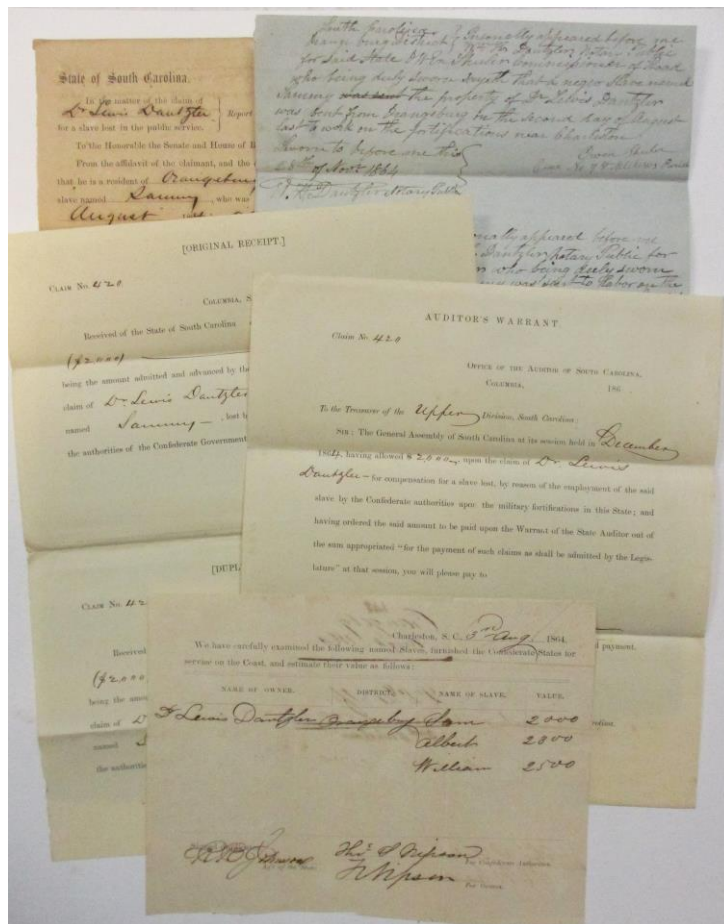 State of South Carolina.
In the matter of the claim of
Dr Lewis Dantzler } Report
for a slave lost in the public service.
To the Honorable the Senate and House of R
From the affidavit of the claimant, and the
that he is a resident of Orangeburg
slave named Sammy, who was
August
South Carolina
Orangeburg District } Personally appeared before me
W. W. Dantzler Notary Public
for Said State
Commissioner of Road
who being duly Sworn Sayeth that a negro Slave named
Sammy was sent the property of Dr Lewis Dantzler
was Sent from Orangeburg on the Second day of August
last to work on the fortifications near Charleston
Sworn to before me this
28th of Novr 1864
Dantzler Notary Public
appeared before me
Dantzler Notary Public for
who being duly sworn
was sent to labor on the
[ORIGINAL RECEIPT.]
CLAIM No. 420
COLUMBIA, S
Received of the State of South Carolina
($2.000)
being the amount admitted and advanced by the
claim of Dr Lewis Dantzler
named Sammy—, lost b
the authorities of the Confederate Government
[DUPL
CLAIM No. 42
Received
($2.000
being the amou
claim of D
named S
the authorities
AUDITOR'S WARRANT
Claim No. 420
OFFICE OF THE AUDITOR OF SOUTH CAROLINA.
COLUMBIA, 186
To the Treasurer of the Upper Division, South Carolina:
SIR: The General Assembly of South Carolina at its session held in December
1864, having allowed $2,000 upon the claim of Dr. Lewis
Dantzler — for compensation for a slave lost, by reason of the employment of the said
slave by the Confederate authorities upon the military fortifications in this State; and
having ordered the said amount to be paid upon the Warrant of the State Auditor out of
the sum appropriated "for the payment of such claims as shall be admitted by the Legis-
lature" at that session, you will please pay to
payment.
Charleston, S. C. 3rd Aug 1864.
We have carefully examined the following named Slaves, furnished the Confederate States for
service on the Coast, and estimate their value as follows:
NAME OF OWNER. DISTRICT. NAME OF SLAVE. VALUE.
Dr Lewis Dantzler Orangeburg Sam 2000
Albert 2800
William 2500
For Confederate Authorities.
For Owners.